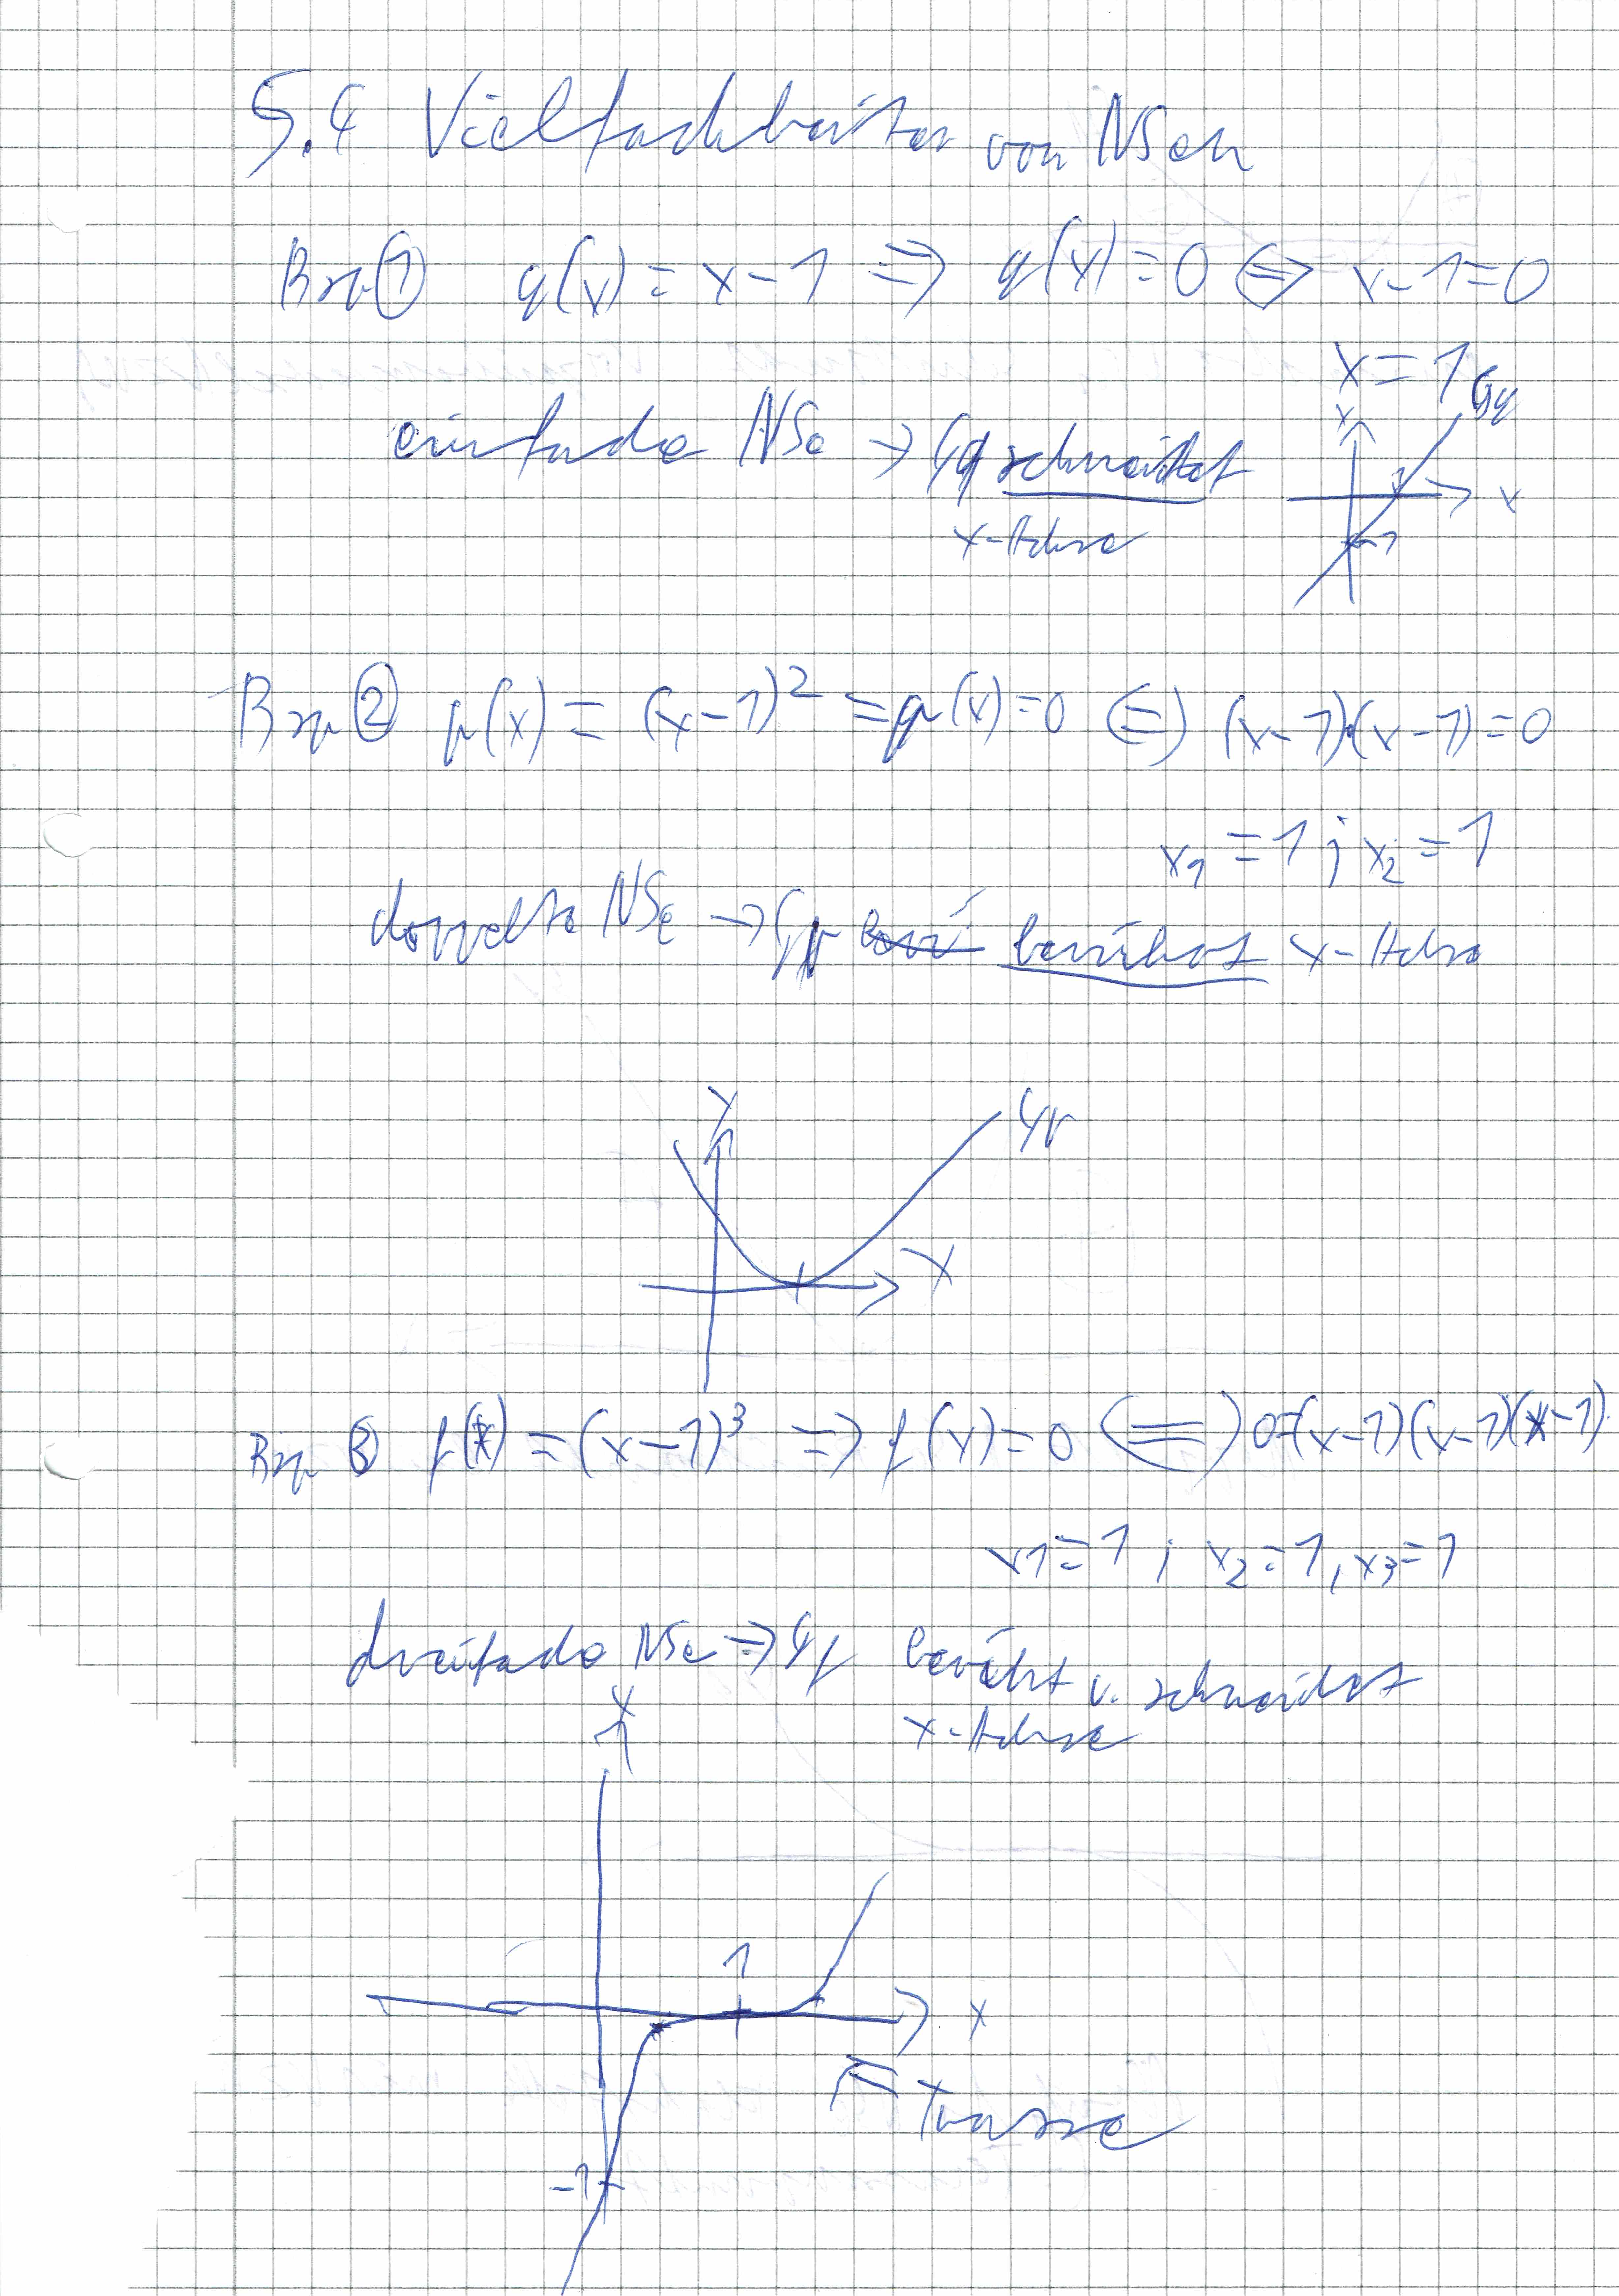 5.4 Vielfachheiten von NSen
Bsp ① g(x) = x - 1 ⇒ g(x) = 0 ⇔ x - 1 = 0
x = 1
einfache NSe → Gg schneidet
x-Achse
Gg
y
1
x
-1
Bsp ② p(x) = (x-1)² ⇒ p(x) = 0 ⇔ (x-1)·(x-1) = 0
x₁ = 1 ; x₂ = 1
doppelte NSe → Gp berührt x-Achse
y
Gp
x
Bsp ③ f(x) = (x-1)³ ⇒ f(x) = 0 ⇔ 0=(x-1)(x-1)(x-1)
x1 = 1 ; x₂ = 1, x₃ = 1
dreifache NSe ⇒ Gf berührt u. schneidet
x-Achse
y
1
x
Terrasse
-1